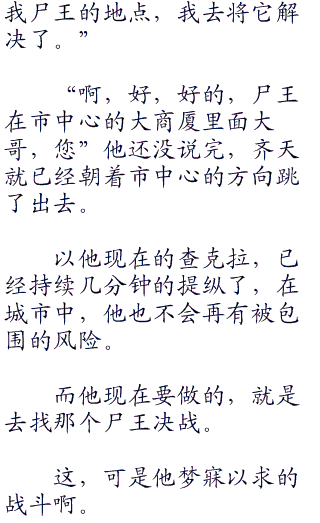 我尸王的地点，我去将它解
决了。”
“啊，好，好的，尸王
在市中心的大商厦里面大
哥，您”他还没说完，齐天
就已经朝着市中心的方向跳
了出去。
以他现在的查克拉，已
经持续几分钟的提纵了，在
城市中，他也不会再有被包
围的风险。
而他现在要做的，就是
去找那个尸王决战。
这，可是他梦寐以求的
战斗啊。